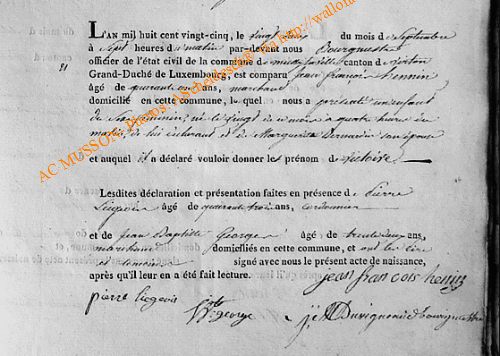 L'AN mil huit cent vingt-cinq, le vingt du mois de Septembre
à Sept heures du matin par-devant nous Bourguestre
officier de l'état civil de la commune de canton de
Grand-Duché de Luxembourg, est comparu jean françois hennin
51
âgé de quarante ans, marchand
domicilié en cette commune, lequel nous a présenté un enfant
de Sexe féminin, né le vingt de ce mois à quatre heures du
matin, de lui déclarant et de Marguerite Bernardin son épouse
et auquel il a déclaré vouloir donner le prénom de Victoire.
Lesdites déclaration et présentation faites en présence de Pierre
Liegeois âgé de quarante trois ans, cordonnier
et de Jean Baptiste George âgé de trente ans,
marchand domiciliés en cette commune, et ont le
et témoins signé avec nous le présent acte de naissance,
après qu'il leur en a été fait lecture.
jean francois henin
pierre liegeois
george
Duvigneaud bourguestre
AC MUSSON, Photos: A.Scheldeesche http://wallo